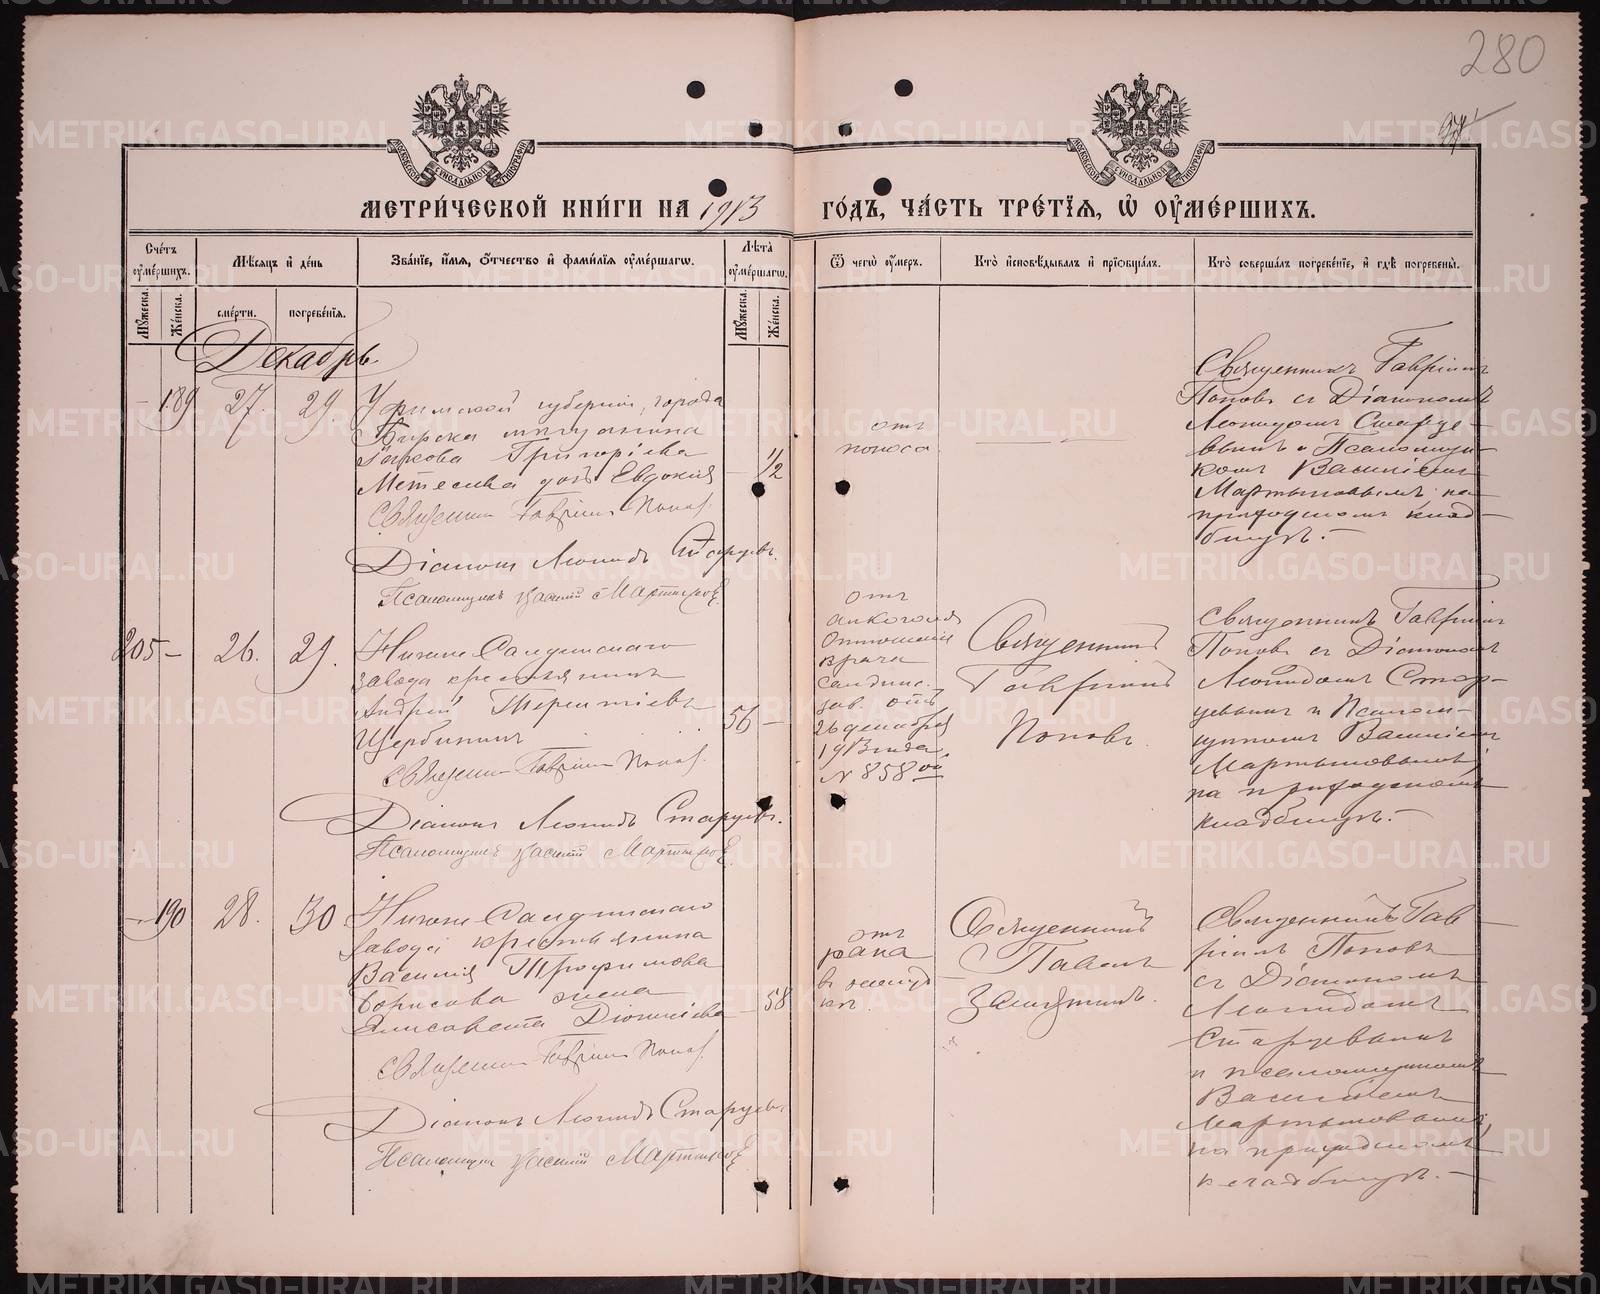 280
МЕТРИ́ЧЕСКОЙ КНИ́ГИ НА 1913 ГО́ДЪ, ЧА́СТЬ ТРЕ́ТІѦ, Ѡ ОУ҆МЕ́РШИХЪ.
Сче́тъ оу҆ме́ршихъ.
Мѣ́сѧцъ и҆ де́нь
Зва́нїе, и҆́мѧ, ѻ҆́тчество и҆ фами́лїѧ оу҆ме́ршагѡ.
Лѣ́та оу҆ме́ршагѡ.
Ѿ чегѡ̀ оу҆́меръ.
Кто̀ и҆сповѣ́дывалъ и҆ прїѡбща́лъ.
Кто̀ соверша́лъ погребе́нїе, и҆ гдѣ̀ погребены̀.
Мꙋ́жеска.
Же́нска.
сме́рти.
погребе́нїѧ.
Мꙋ́жеска.
Же́нска.
Декабрь
– 189 27. 29.
Уфимской губерніи, города
Бирска мѣщанина
Григорiева
дочь Евдокія – 1/2
Священникъ Гавріилъ Попов.
Діаконъ Леонидъ Старцевъ.
Псаломщикъ Василій Мартынов.
отъ
поноса.
Священникъ Гавріилъ
Поповъ съ Діакономъ
Леонидомъ Старце-
вымъ и Псаломщи-
комъ Василіемъ
Мартыновымъ на
приходскомъ клад-
бищѣ. –
205 – 26. 29.
Нижне Салдинскаго
завода крестьянинъ
Андрей Терентіевъ 56 –
Щербининъ
Священникъ Гавріилъ Попов.
Діаконъ Леонидъ Старцевъ.
Псаломщикъ Василій Мартынов.
отъ
алкоголя
отношеніе
врача
салдинс.
зав. отъ
26 декабря
1913 года
№ 858 ой
Священникъ
Гавріилъ
Поповъ.
Священникъ Гавріилъ
Поповъ съ Діакономъ
Леонидомъ Стар-
цевымъ и Псалом-
щикомъ Василіемъ
Мартыновымъ,
на приходскомъ
кладбищѣ. –
– 190 28. 30
Нижне Салдинскаго
завода крестьянина
Василія Трофимова
Борисова жена
Елисавета Діонисіева – 58
Священникъ Гавріилъ Попов.
Діаконъ Леонидъ Старцевъ.
Псаломщикъ Василій Мартынов.
отъ
рака
въ желуд
кѣ.
Священникъ
Павелъ
Священникъ Гав
ріилъ Поповъ
съ Діакономъ
Леонидомъ
Старцевымъ
и псаломщикомъ
Василіемъ
Мартыновымъ,
на приходскомъ
кладбищѣ. –
METRIKI.GASO-URAL.RU